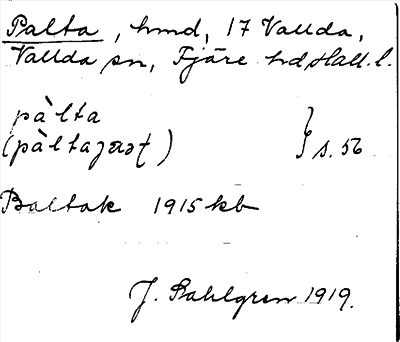 Palta, hmd, 17 Vallda,
Vallda sn, Fjäre hd Hall. l.
pàlta
(pàltagærɛt) } s. 56
Baltak 1915 kb
J. Sahlgren 1919.